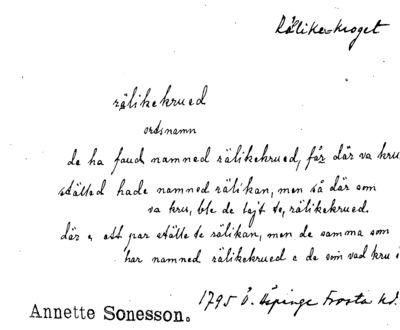 Rälike-kroget
rälikekrued
ordsnamn
de ha faud namned rälikekrued, får där va kru
stälted hade namned rälikan, men så där som
va kru, ble de tajt te, rälikekrued.
där e ett par ställe te rälikan, men de samma som
har namned rälikekrued e de som vad kru
1795 Ö. Äspinge Frosta hd.
Annette Sonesson.